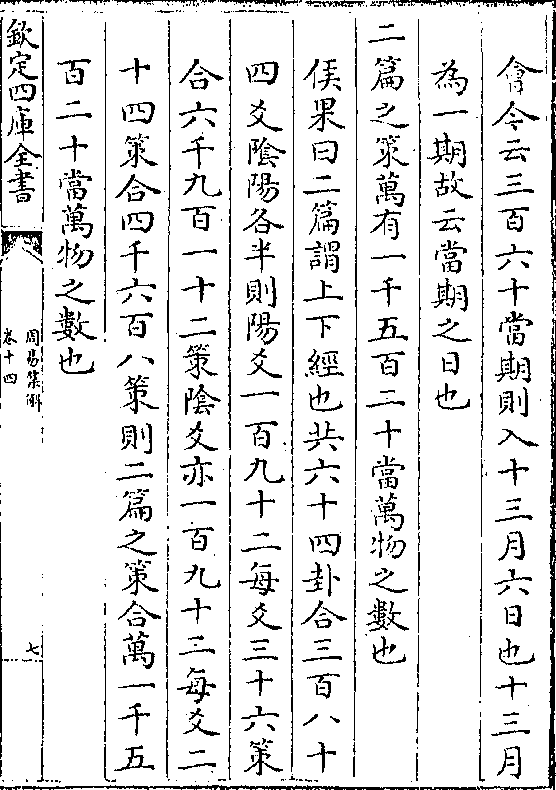 會今云三百六十當期則入十三月六日也十三月
為一期故云當期之日也
二篇之策萬有一千五百二十當萬物之數也
侯果曰二篇謂上下經也共六十四卦合三百八十
四爻陰陽各半則陽爻一百九十二每爻三十六策
合六千九百一十二策陰爻亦一百九十二每爻二
十四策合四千六百八策則二篇之策合萬一千五
百二十當萬物之數也
欽定四庫全書
周易集解
卷十四
七